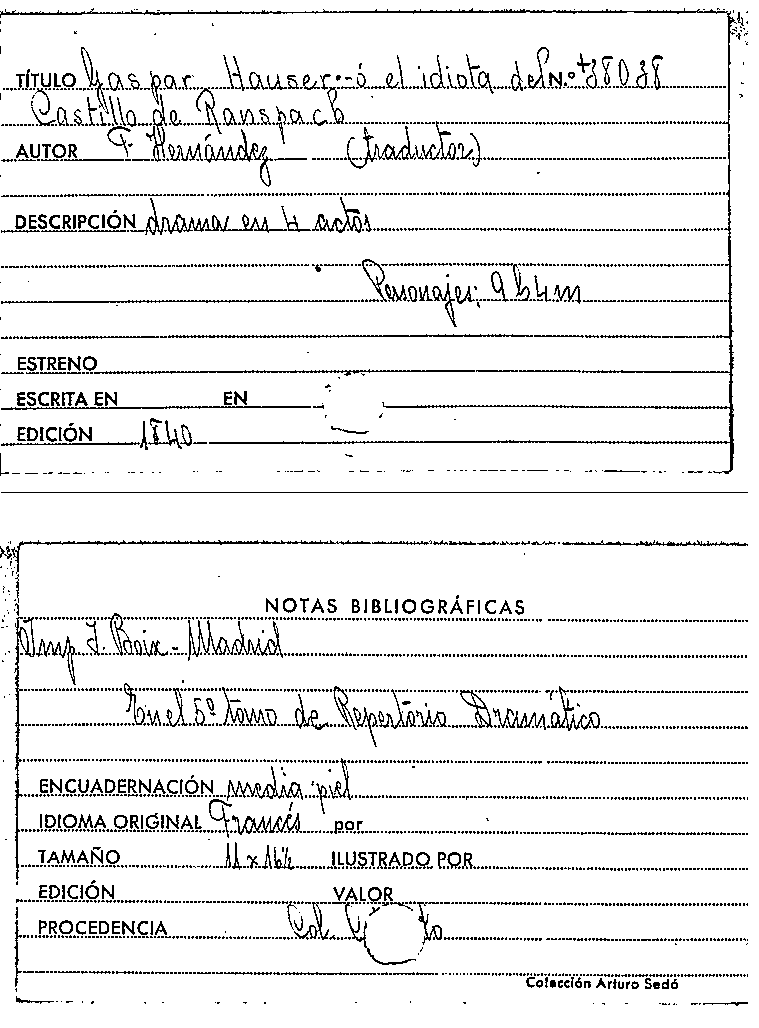 TÍTULO Gaspar Hauser--ó el idiota del N.º 38038
Castillo de Ranspach
AUTOR F. Hernández (traductor)
DESCRIPCIÓN drama en 4 actos
Personajes; 9 h 4 m
ESTRENO
ESCRITA EN EN
EDICIÓN 1840
NOTAS BIBLIOGRÁFICAS
Imp J. Boix - Madrid
En el 5º tomo de Repertorio Dramático
ENCUADERNACIÓN media piel
IDIOMA ORIGINAL Francés por
TAMAÑO 11 x 16½ ILUSTRADO POR
EDICIÓN VALOR
PROCEDENCIA Col.
Colección Arturo Sedó